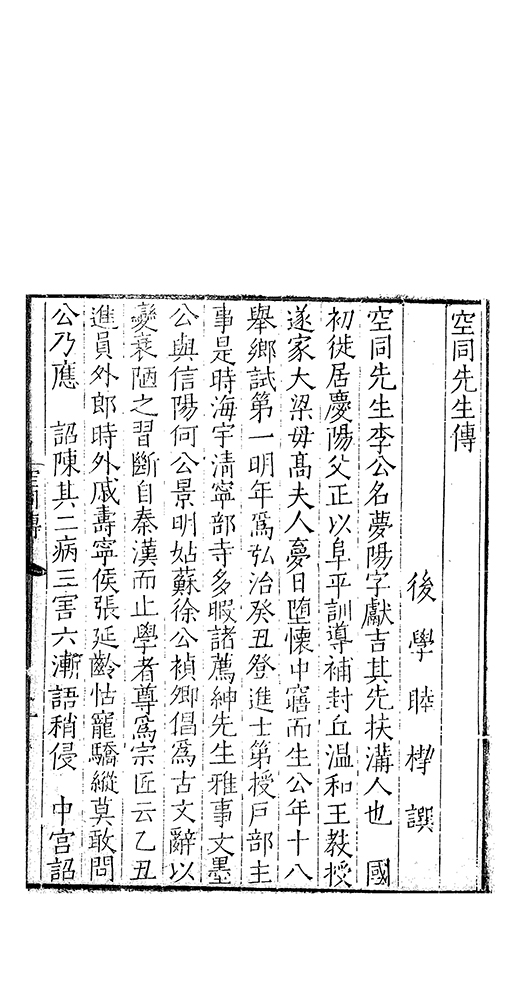 空同先生傳
後學睦㮮譔
空同先生李公名夢陽字獻吉其先扶溝人也　國
初徙居慶陽父正以阜平訓導補封丘溫和王教授
遂家大梁母高夫人夢日墮懷中寤而生公年十八
舉鄉試第一明年爲弘治癸丑登進士第授戶部主
事是時海宇淸寧部寺多暇諸薦紳先生雅事文墨
公與信陽何公景明姑蘇徐公禎卿倡爲古文辭以
變衰陋之習斷自秦漢而止學者尊爲宗匠云乙丑
進員外郎時外戚壽寧侯張延齡怙寵驕縱莫敢問
公乃應　詔陳其二病三害六漸語稍侵　中宮詔
空同傳